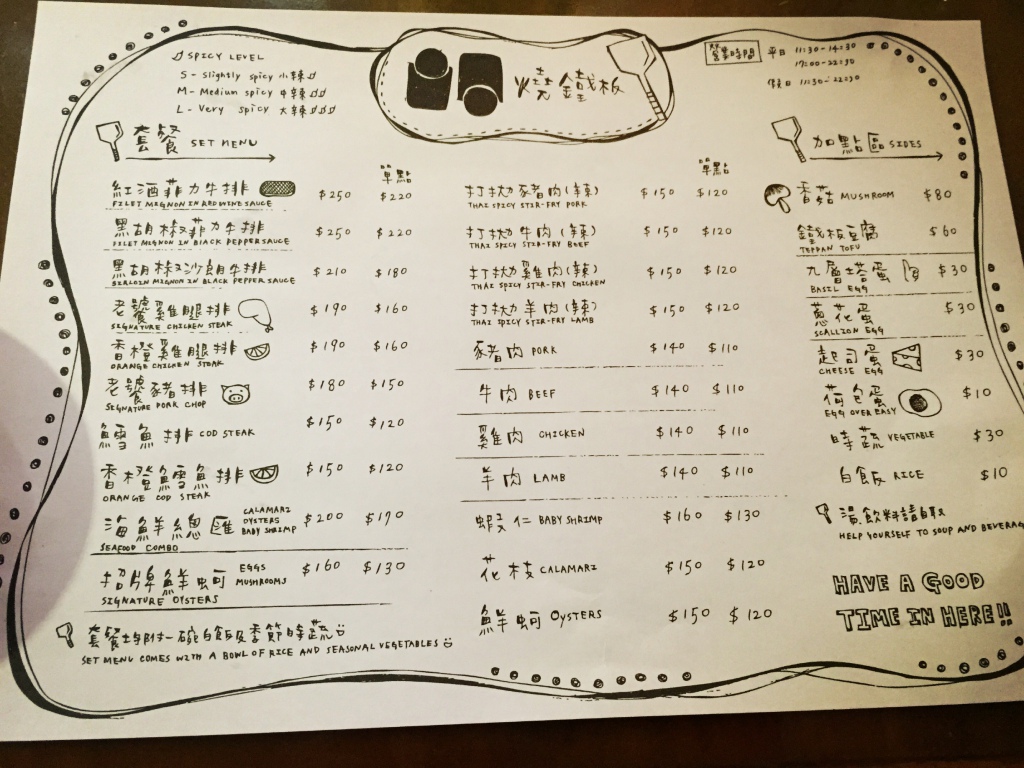 SPICY LEVEL
S - Slightly spicy 小辣
M - Medium spicy 中辣
L - Very spicy 大辣
燒鐵板
營業時間 平日 11:30-14:30
17:00-22:30
假日 11:30-22:30
套餐 SET MENU
單點
紅酒菲力牛排 $250 $220
FILET MIGNON IN RED WINE SAUCE
黑胡椒菲力牛排 $250 $220
FILET MIGNON IN BLACK PEPPER SAUCE
黑胡椒沙朗牛排 $210 $180
SIRLOIN MIGNON IN BLACK PEPPER SAUCE
老饕雞腿排 $190 $160
SIGNATURE CHICKEN STEAK
香橙雞腿排 $190 $160
ORANGE CHICKEN STEAK
老饕豬排 $180 $150
SIGNATURE PORK CHOP
鱈魚排 COD STEAK $150 $120
香橙鱈魚排 $150 $120
ORANGE COD STEAK
海鮮總匯 CALAMARI OYSTERS BABY SHRIMP $200 $170
SEAFOOD COMBO
招牌鮮蚵 EGGS MUSHROOMS $160 $130
SIGNATURE OYSTERS
套餐均附一碗白飯及季節時蔬
SET MENU COMES WITH A BOWL OF RICE AND SEASONAL VEGETABLES
單點
打拋豬肉(辣) $150 $120
THAI SPICY STIR-FRY PORK
打拋牛肉(辣) $150 $120
THAI SPICY STIR-FRY BEEF
打拋雞肉(辣) $150 $120
THAI SPICY STIR-FRY CHICKEN
打拋羊肉(辣) $150 $120
THAI SPICY STIR-FRY LAMB
豬肉 PORK $140 $110
牛肉 BEEF $140 $110
雞肉 CHICKEN $140 $110
羊肉 LAMB $140 $110
蝦仁 BABY SHRIMP $160 $130
花枝 CALAMARI $150 $120
鮮蚵 OYSTERS $150 $120
加點區 SIDES
香菇 MUSHROOM $80
鐵板豆腐 $60
TEPPAN TOFU
九層塔蛋 $30
BASIL EGG
蔥花蛋 $30
SCALLION EGG
起司蛋 $30
CHEESE EGG
荷包蛋 $10
EGG OVER EASY
時蔬 VEGETABLE $30
白飯 RICE $10
湯飲料請自取
HELP YOURSELF TO SOUP AND BEVERAG
HAVE A GOOD
TIME IN HERE!!